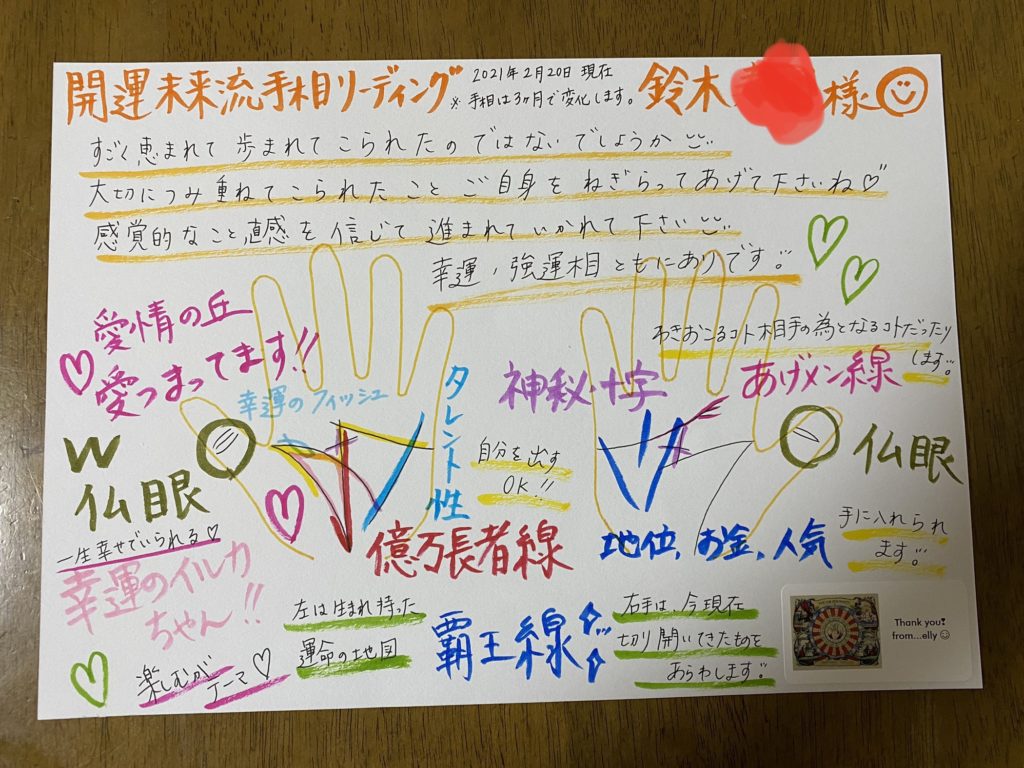 開運未来流手相リーディング
2021年2月20日 現在
※ 手相は3ヶ月で変化します。
鈴木
様
すごく恵まれて 歩まれて こられたのではないでしょうか
大切につみ重ねてこられたこと ご自身をねぎらってあげて下さいね♡
感覚的なこと直感を信じて 進まれていかれて下さい
幸運、強運相ともにありです。
愛情の丘
愛つまってます!!
幸運のフィッシュ
タレント性
神秘十字
わきおこるコト相手の為となるコトだったり
します。
あげメン線
W
仏眼
自分を出す
OK!!
仏眼
一生幸せでいられる♡
億万長者線
地位、お金、人気
手に入れられ
ます。
幸運のイルカ
ちゃん!!
左は生まれ持った
運命の地図
覇王線
右手は、今現在
切り開いてきたものを
あらわします。
楽しむが
テーマ♡
Thank you!
from...elly